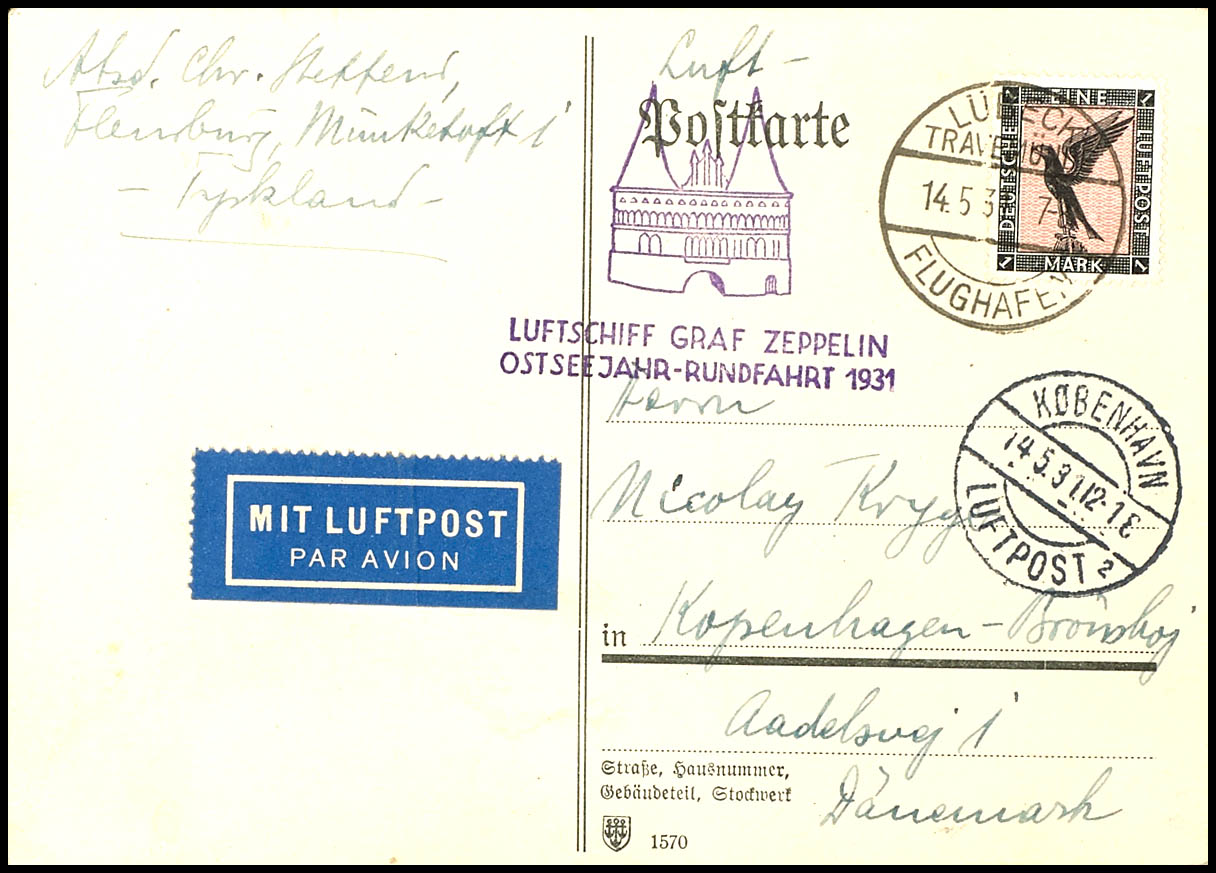 Absd. Chr. Steffens,
Flensburg, Munketoft 1
- Tyskland -
Luft-
Postkarte
LÜBECK
TRAVEMÜNDE
14.5.3 7-
FLUGHAFEN
EINE
DEUTSCHE
LUFTPOST
1 MARK 1
LUFTSCHIFF GRAF ZEPPELIN
OSTSEEJAHR-RUNDFAHRT 1931
Herrn
KØBENHAVN
14.5.31.12-1E
LUFTPOST 2
Nicolay
MIT LUFTPOST
PAR AVION
in Kopenhagen-Brönshoj
Aadelsvej 1
Straße, Hausnummer,
Gebäudeteil, Stockwerk
Dänemark
1570